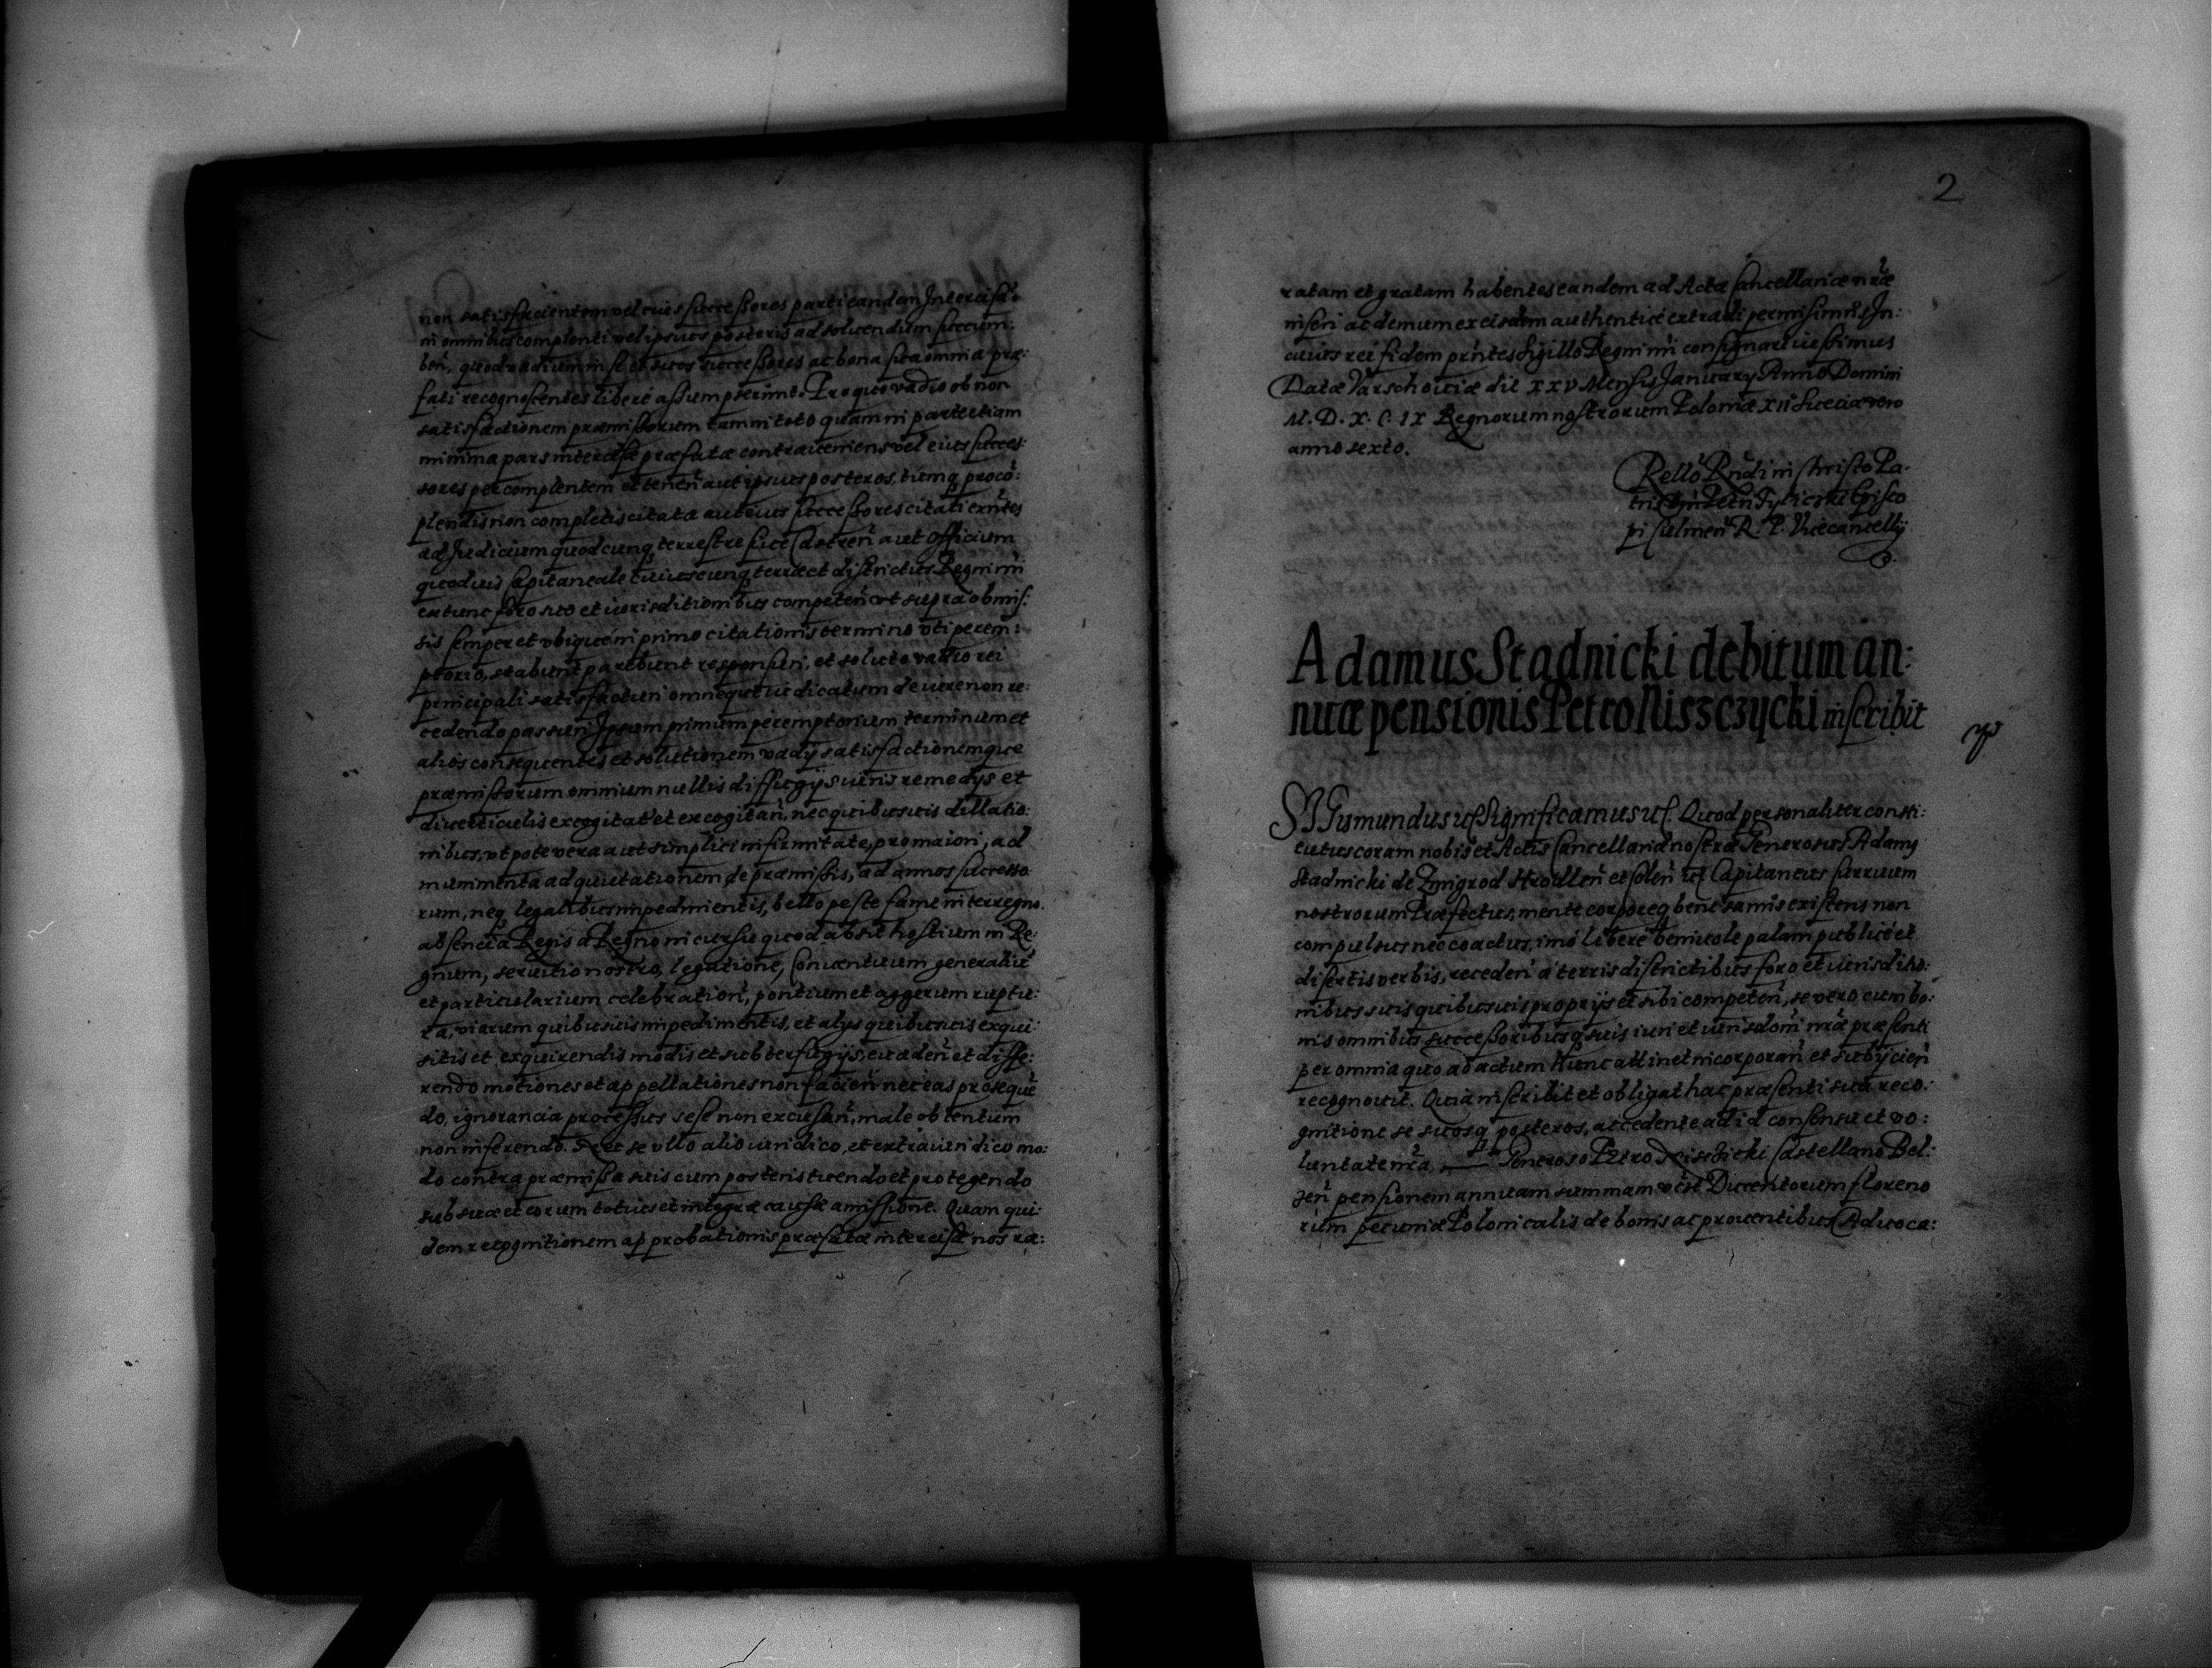 non satisfacientem vel eius successores parti eandem Intercisā
in omnibus complenti vel ipsius posteris ad soluendum succum:
ben̄, quod vadium in se et suos successores ac bona sua omnia præ:
fati recognoscentes libere assumpserunt. Pro quo vadio ob non
satisfactionem præmissorum tam in toto quam in parte etiam
minima pars intercisæ præfatæ contraueniens vel eius succes:
sores per complentem et tenen̄ aut ipsius posteros, tiemq̨ proco:
plendis non completis citatæ aut eius successores citati exn̄tes
ad Judicium quodcunq̨ terrestre siue Castren̄ aut Officium
quoduis Capitaneale cuiuscunq̨ terræ et districtus Regni nr̄i
extunc foro suo et iurisditionibus competen̄ vt supra obmis:
sis semper et vbique in primo citationis termino vti perem:
ptorio, stabunt parebunt responsuri, et soluto vadio rei
principali satisfacturi omneque iudicatum de iure non re:
cedendo passuri Ipsum primum peremptorium terminum et
alios consequentes et solutionem vadij satisfactionemque
præmissorum omnium nullis diffugijs iuris remedys et
diuerticulis excogitat̄ et excogitan̄, nec quibusuis dillatio:
nibus, vt pote vera aut simplici infirmitate, pro maiori, ad
munimenta ad quietationem de præmissis, ad annos successo
rum, neq̨ legalibus impedimentis, bello peste fame interregno.
absencia Regis a Regno incursu quod absit hostium in Re:
gnum, seruitio nostro, legatione, Conuentuum generaliū
et particularium celebration̄, pontium et aggerum ruptu:
ra, viarum quibusuis impedimentis, et alys quibusuis exqui:
sitis et exquirendis modis et subterfugijs, euaden̄ et diffe:
rendo motiones et appellationes non facien̄ nec eas proseque
do, ignorancia processus sese non excusan̄, male obtentum
non inferendo. Nec se vllo alio iuridico, et extraiuridico mo:
do contra præmissa suis cum posteris tuendo et protegendo
sub suæ et eorum totius et integræ causæ amissione. Quam qui:
dem recognitionem approbationis præfatæ intercisæ nos ra:
2
ratam et gratam habentes eandem ad Acta Cancellariæ nr̄æ
inseri ac demum ex eisdem authentice extradi permisimus. In:
cuius rei fidem prn̄tes Sigillo Regni nr̄i consignari iussimus
Datæ Varschouiæ die XXV Mensis January Anno Domini
M. D. X. C. IX Regnorum nostrorum Poloniæ XII Sueciæ vero
anno sexto.
Rello Rn̄di in Christo Pa:
tris Dn̄i Petri Tylicki Episco
pi Culmen̄ R. P. Vicecancellij
Adamus Stadnicki debitum an:
nuæ pensionis Petro Niszczycki inscribit
SIGismundus etc̄ Significamus etc̄. Quod personaliter consti:
tutus coram nobis et Actis Cancellariæ nostræ Generosus Adamus
Stadnicki de Zmigrod Hrodlen̄ et Solen̄ etc̄ Capitaneus curruum
nostrorum Præfectus, mente corporeq̨ bene sanus existens non
compulsus nec coactus, imo libere beniuole palam publice et
disertis verbis, receden̄ a terris districtibus foro et iurisditio:
nibus suis quibusuis proprijs et sibi competen̄, se vero cum bo:
nis omnibus successoribusq̨ suis iuri et iurisdoni nr̄æ præsenti
per omnia quo ad actum hunc attinet incorporan̄ et subijcien̄
recognouit. Quia inscribit et obligat hac præsenti sua reco:
gnitione se suosq̨ posteros, accedente ad id consensu et vo:
luntate nr̄a, Generoso Petro Niszczicki Castellano Bel:
zen̄ pensionem annuam summam vc̄z Ducentorum floreno
rum pecuniæ Polonicalis de bonis ac prouentibus Aduoca: